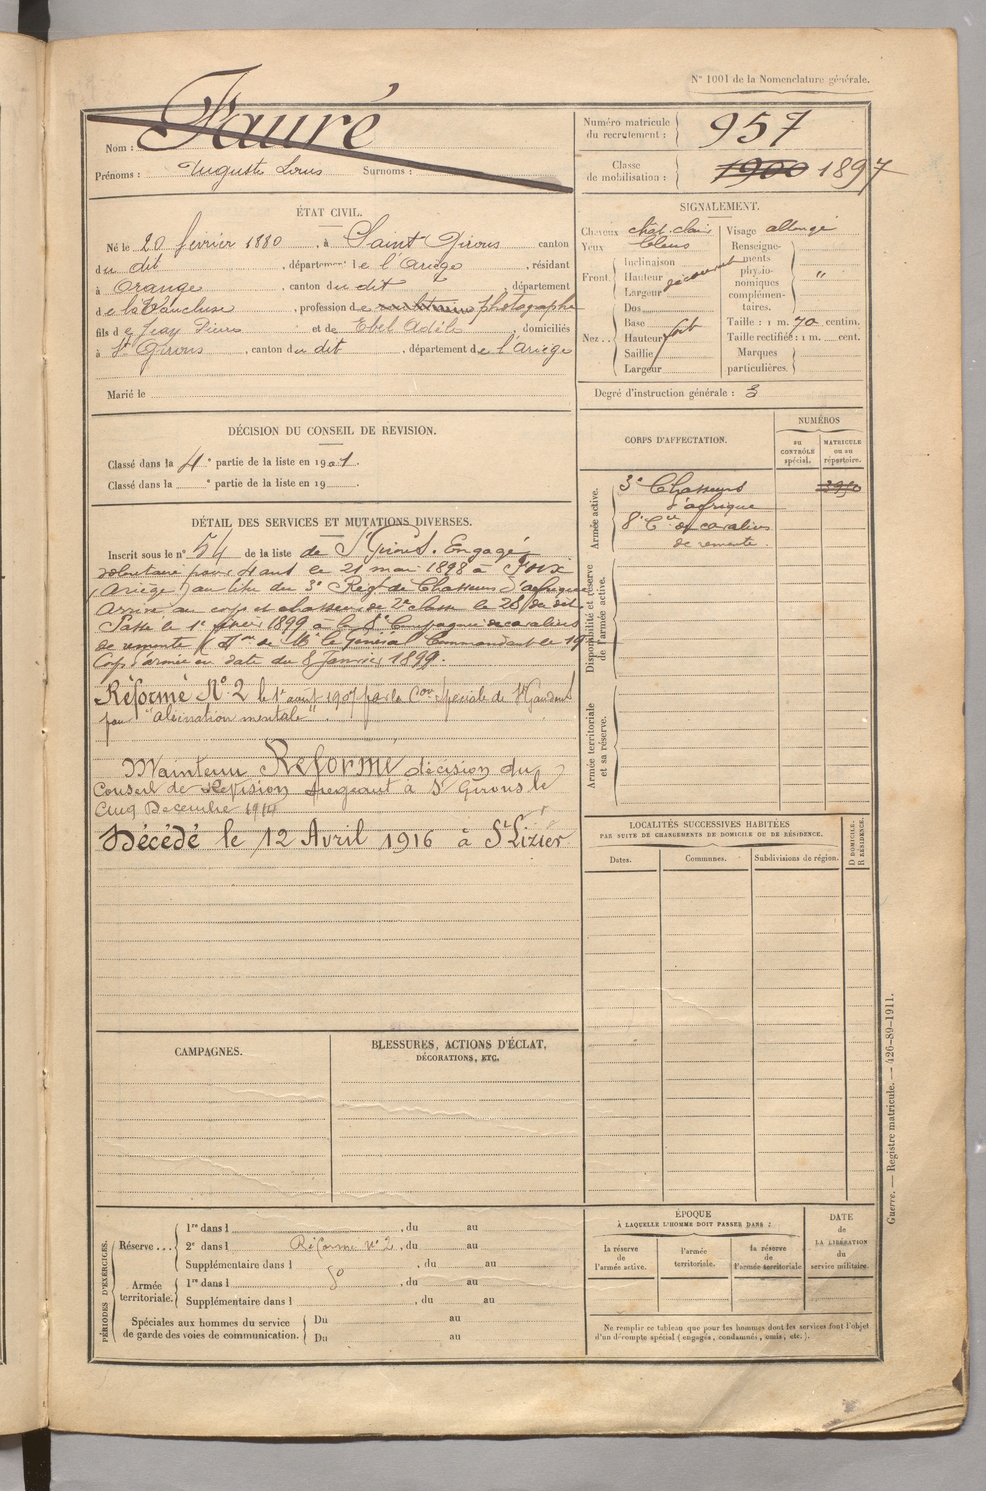 N° 1001 de la Nomenclature générale.
Nom : Fauré
Prénoms : Auguste Louis Surnoms :
Numéro matricule du recrutement : 957
Classe de mobilisation : 1900 1897
ÉTAT CIVIL.
Né le 20 février 1880, à Saint Girons canton
du dit, département de l'Ariège, résidant
à Orange, canton du dit, département
de la Vaucluse, profession de photographe
fils de Jean Pierre et de Ebel Adèle, domiciliés
à St Girons, canton du dit, département de l'Ariège
Marié le
SIGNALEMENT.
Cheveux chât. clair
Yeux bleus
Front. Inclinaison
Hauteur découvert
Largeur
Nez.. Dos
Base
Hauteur fort
Saillie
Largeur
Visage allongé
Renseignements physionomiques complémentaires. "
Taille : 1 m. 70 centim.
Taille rectifiée : 1 m. cent.
Marques particulières.
Degré d'instruction générale : 3
DÉCISION DU CONSEIL DE REVISION.
Classé dans la 4e partie de la liste en 1901.
Classé dans la e partie de la liste en 19 .
CORPS D'AFFECTATION.
NUMÉROS
AU CONTRÔLE spécial.
MATRICULE ou au répertoire.
Armée active.
3e Chasseurs 3950
d'afrique
8e Cie de cavaliers
de remonte.
Disponibilité et réserve de l'armée active.
Armée territoriale et sa réserve.
DÉTAIL DES SERVICES ET MUTATIONS DIVERSES.
Inscrit sous le n° 54 de la liste de St Girons. Engagé
volontaire pour 4 ans le 21 mai 1898 à Foix
(Ariège) au titre du 3e Régt de Chasseurs d'afrique
Arrivé au corps et chasseur de 2e classe le 28 du dit.
Passé le 1er février 1899 à la 8e Compagnie de cavaliers
de remonte de Mr le Général Commandant le 19e
Corps d'armée en date du 8 Janvier 1899.
Réformé N° 2 le 1er août 1907 par la Con Spéciale de St Gaudens
pour "aliénation mentale".
Maintenu Réformé décision du
Conseil de Révision siégeant à St Girons le
Cinq Décembre 1914
Décédé le 12 Avril 1916 à St Lizier
LOCALITÉS SUCCESSIVES HABITÉES
PAR SUITE DE CHANGEMENTS DE DOMICILE OU DE RÉSIDENCE.
Dates.
Communes.
Subdivisions de région.
D DOMICILE. R RÉSIDENCE.
CAMPAGNES.
BLESSURES, ACTIONS D'ÉCLAT,
DÉCORATIONS, ETC.
PÉRIODES D'EXERCICES.
Réserve... 1re dans l , du au
2e dans l Réformé n° 2, du au
Supplémentaire dans l , du au
Armée territoriale. 1re dans l , du au
Supplémentaire dans l , du au
Spéciales aux hommes du service de garde des voies de communication. Du au
Du au
ÉPOQUE
À LAQUELLE L'HOMME DOIT PASSER DANS :
la réserve de l'armée active.
l'armée territoriale.
la réserve de l'armée territoriale
DATE de LA LIBÉRATION du service militaire.
Ne remplir ce tableau que pour les hommes dont les services font l'objet
d'un décompte spécial (engagés, condamnés, omis, etc.).
Guerre. — Registre matricule. — 426-89-1911.